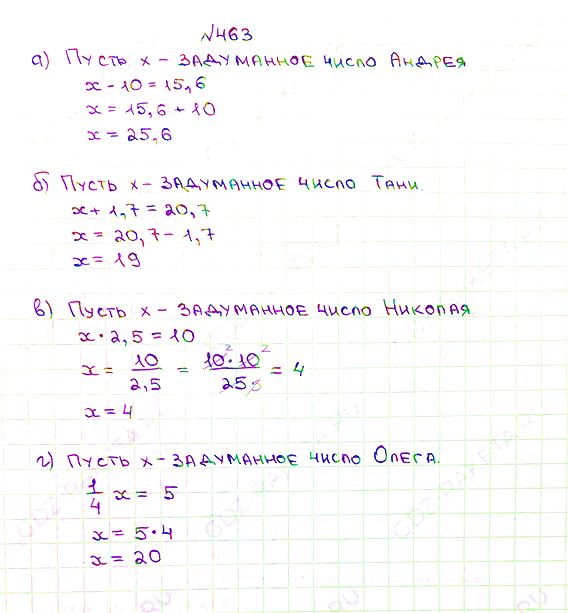 №463
а) Пусть x - задуманное число Андрея
x - 10 = 15,6
x = 15,6 + 10
x = 25,6
б) Пусть x - задуманное число Тани.
x + 1,7 = 20,7
x = 20,7 - 1,7
x = 19
в) Пусть x - задуманное число Николая.
x · 2,5 = 10
x = 10/2,5 = 10² · 10²/25 5 = 4
x = 4
г) Пусть x - задуманное число Олега.
1/4 x = 5
x = 5 · 4
x = 20
GDZ-RAKETA.RU